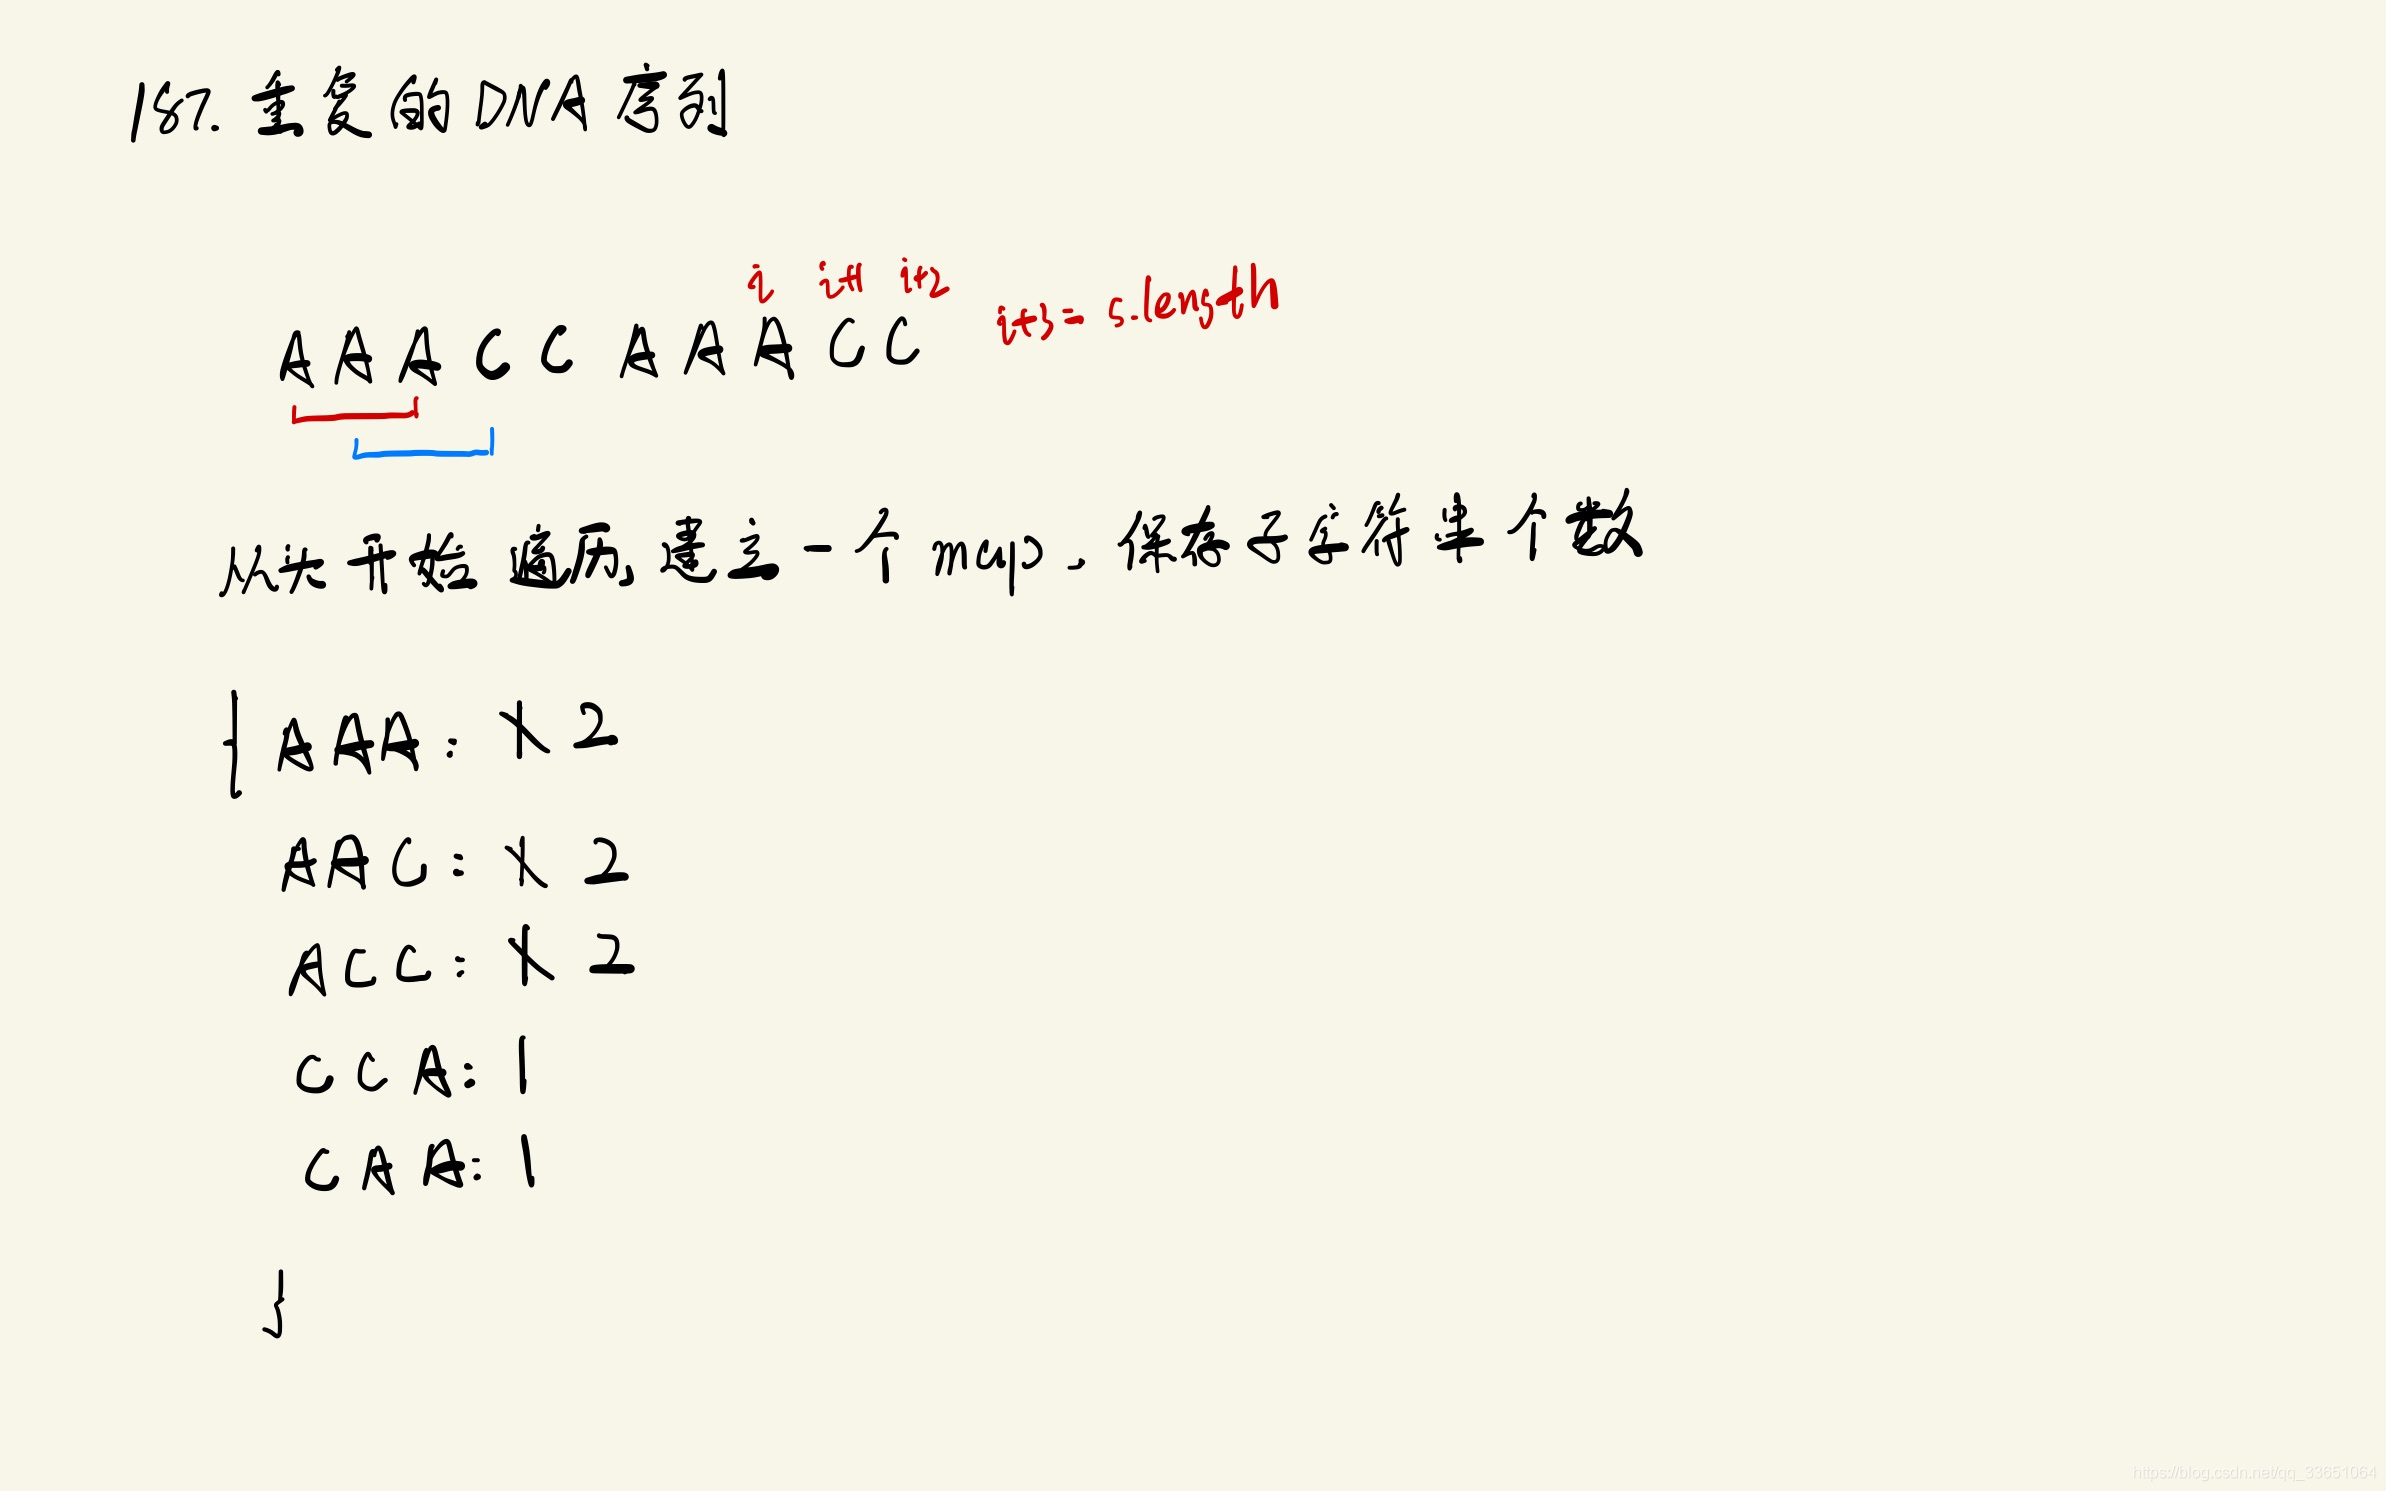 187. 重复的DNA序列
i i+1 i+2 i+3 = s.length
AAACCAAACC
从头开始遍历,建立一个map.保存子字符串个数
{ AAA: 1 2
AAC: 1 2
ACC: 1 2
CCA: 1
CAA: 1
}
https://blog.csdn.net/qq_33651064